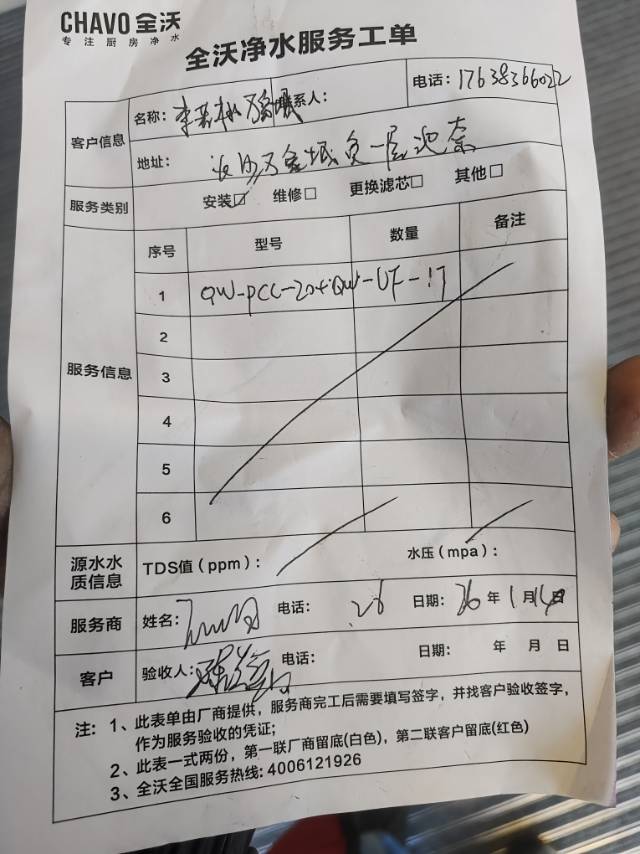 CHAVO 全沃
专注厨房净水
全沃净水服务工单
客户信息
名称： 联系人： 电话：17638366022
地址： 负一层
服务类别 安装☑ 维修□ 更换滤芯□ 其他□
服务信息
序号 型号 数量 备注
1 QW-PCC-20+QW-UF-1T
2
3
4
5
6
源水水质信息 TDS值（ppm）： 水压（mpa）：
服务商 姓名： 电话： 26 日期：26年1月14日
客户 验收人： 电话： 日期： 年 月 日
注：1、此表单由厂商提供，服务商完工后需要填写签字，并找客户验收签字，
作为服务验收的凭证；
2、此表一式两份，第一联厂商留底(白色)，第二联客户留底(红色)
3、全沃全国服务热线：4006121926